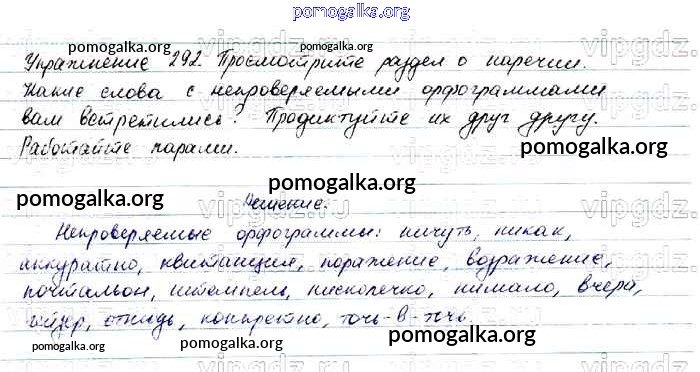 pomogalka.org
Упражнение 292. Просмотрите раздел о наречии.
pomogalka.org pomogalka.org
Какие слова с непроверяемыми орфограммами
вам встретились? Продиктуйте их друг другу.
Работайте парами.
pomogalka.org
pomogalka.org pomogalka.org
Решение.
Непроверяемые орфограммы: ничуть, никак,
аккуратно, квитанция, поражение, возражение,
почтальон, штемпель, нисколечко, нимало, вчера,
отнюдь, конкретно, точь-в-точь.
pomogalka.org pomogalka.org
pomogalka.org
vipgdz.ru